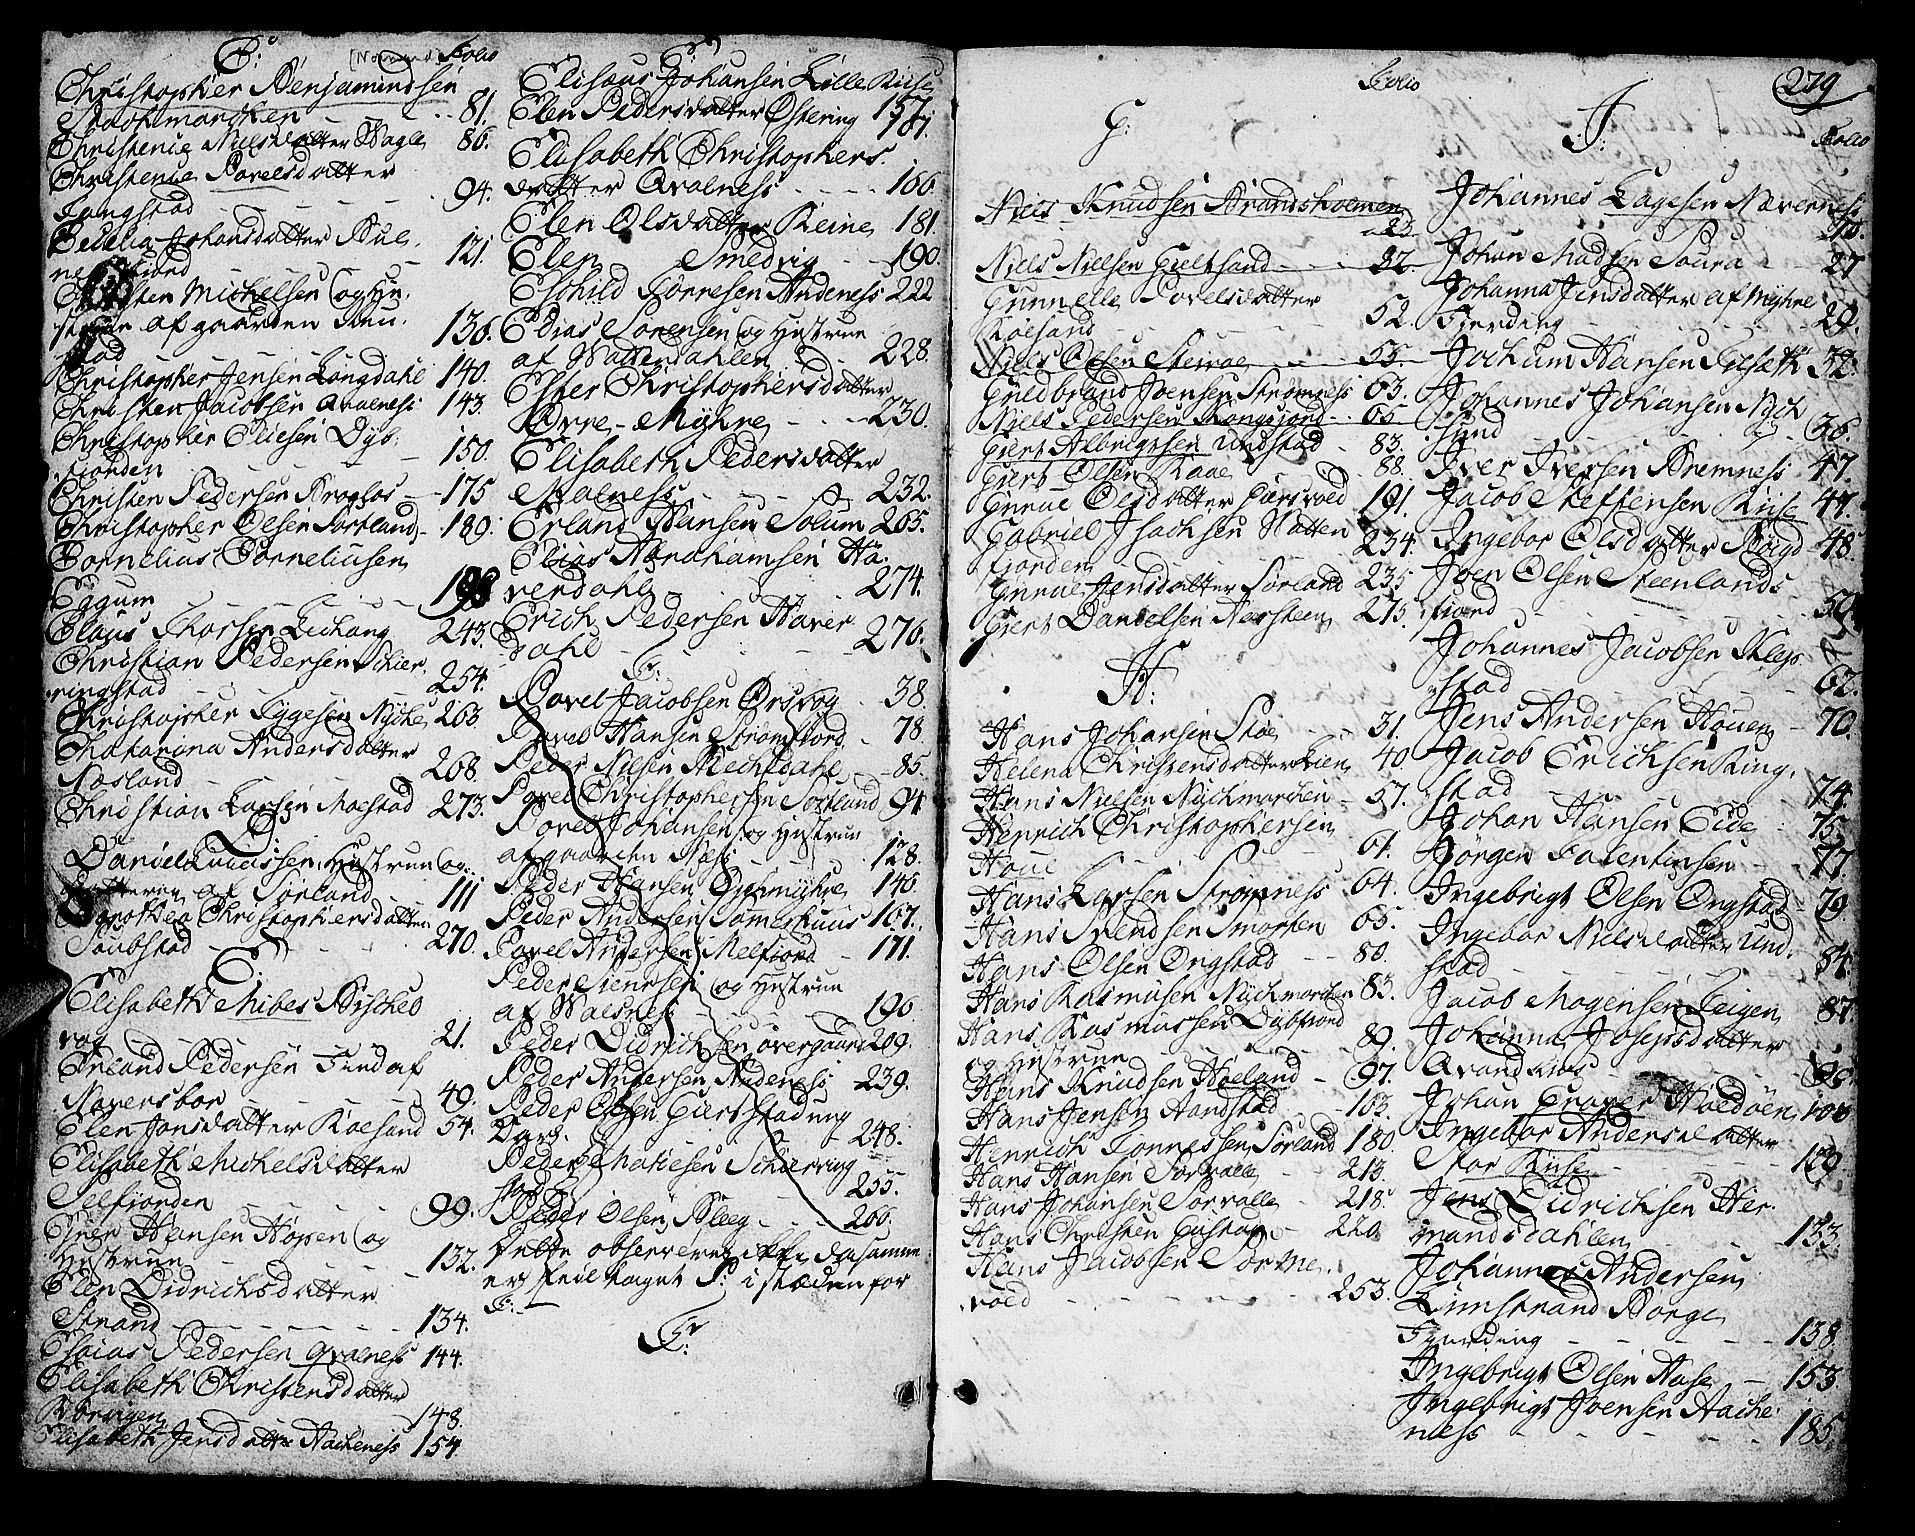 C:
[Normand] Folio
Christopher Benjaminsen
Stochmarchen - - - 81.
Christenie Nielsdatter Wagle 86.
Christenie Povelsdatter
Jangstad - - - - - 94.
Cecelia Johansdatter Bul-
nesfiord - - - 121.
Christen Michelsen (og Hu-
struue af gaarden
stad 136.
Christopher Jensen Longdahl 140.
Christen Jacobsen Qvalness 143.
Christopher Eliesen Dyb-
fjorden - - - - 150.
Christen Pedersen Kroghos - 175
Christopher Olsen Sortland - 189.
Cornelius Corneliusen
Eggum - - - 198
Claus Thorsen Lechang 243.
Christian Pedersen Schier-
ringstad - - - 254.
Christopher Tygesen Nyche 263
Chatarina Andersdatter
Næsland - - - 268.
Christian Larsen Mastad 273.
D
Daniel Knudssen, Hustrun (og
Datteren af Sørland 111
Dorothea Christophersdatter
Taubstad - - - 270.
E:
Elisabeth Mibes Bischeb
vog - - - - 21.
Erland Pedersen Fund af
Naversbor - - - 49.
Elen Jonsdatter Roesand 54.
Elisabeth Michelsdatter
Selfjorden - - - 99.
Ener Hansen Hopen (og
Hustrun - - - 132.
Elen Didrichsdatter
Strand - - - - 134.
Esaias Pedersen Qvalness 144.
Elisabeth Christensdatter
Borvigen - - - 148.
Elisabeth Jensdatter Hacheness 154
E:
Elisæus Johansen Lille Riise
157.
Elen Pedersdatter Østering 161.
Elisabeth Christophers-
datter Qvalness - - - 166.
Elen Olsdatter Reine 181.
Elen Smedvig - - 190.
Eschild Torresen Andeness 222
Elias Sørensen (og Hustrue
af Watterdahlen - - 228.
Ester Christophersdatter
Øvre-Myhre - - - 230.
Elisabeth Pedersdatter
Malness - - - 232.
Erland Hansen Solum 265.
Elias Abrahamsen Ha-
verdahl - - - 274.
Erich Pedersen Haver
dahl - - - 276.
F:
Povel Jacobsen Ørsvog - 38.
Povel Hansen Strømfiord - 78
Peder Nilsen Mechtdahl - 85.
Povel Christophersen Sortland 94
Povel Johansen (og Hustrun
af gaarden Næs - - - 128.
Peder Hansen Opmyhre 146.
Peder Andersen Somerhuus 167.
Povel Andersen Melfiord - 171.
Peder Siversen (og Hustrun
af Walsness - - - 190
Peder Didrichsen overgaard 209.
Peder Andersen Andeness 239.
Peder Olsen Giertstad ung
Darg. - - - 248.
Peder Matiesen Schiærving
stad 255.
Peder Olsen Kleeg - - - 266.
Dette observeres ikke da samme
er feil taget P: i stæden for
F:
F:
Folio
G:
Niels Knudsen Strandsholmen
23
Niels Nielsen Gieltsand - - - 32.
Gunnelle Povelsdatter
Roesand - - - 52.
Niels Olsen Steiroe - - - 55.
Guldbrand Joensen Strømness 63.
Niels Pedersen Kongsjord - - 66
Giert Albrigtsen Undstad - 83.
Giert Olsen Raae - - - 88.
Gunne Olsdatter Giersvold 191.
Gabriel Isachsen Watten
fjorden - - - 234.
Gunnel Jensdatter Sørland 235
Giert Danielsen Harsteen 275.
H:
Hans Johansen Stöe - - 31.
Helena Christensdatter Lien 40
Hans Nielsen Nychmarchen 57.
Henrich Christophersen
Houe - - - 61.
Hans Larsen Strømness 64.
Hans Svendsen Smorten 65.
Hans Olsen Ongstad - - 80.
Hans Rasmusen Nychmarchen 83.
Hans Rasmussen Dybfiord
og Hustrun - - - 89.
Hans Knudsen Høeland - 97.
Hans Jensen Aandstad - 103.
Henrich Tonnessen Sørland 180.
Hans Hansen Sorvalle - 213.
Hans Johansen Sorvalle - 218.
Hans Christen Gustav - 220.
Hans Jacobsen Sorme-
roed - - - - 253.
279
I:
Folio
Johannes Lagesen Næverness
10.
Johan Madsen Soura - 27
Johanna Jensdatter af Myhre
Fierding - - - 29.
Jochum Hansen Giset 32.
Johannes Johansen Nych
sund - - - 36.
Iver Iversen Bremness 47.
Jacob Steffensen Riise 47.
Ingebor Olsdatter Bøigd 48
Joen Olsen Steenlands
fiord - - - 50.
Johannes Jacobsen Klep
stad - - - 62.
Jens Andersen Houen - 70.
Jacob Erichsen Ring-
stad - - - 74.
Johan Hansen Eide - 75.
Jörgen Falentinsen - - 77.
Ingebrigt Olsen Ongstad - 79
Ingebor Nielsdatter Und-
stad - - - - 84.
Jacob Mogensen Leigen 87.
Johanna Josepsdatter
Qvandhios - - -
Johan Graver Wædöen 100
Ingebor Andersdatter
Stor Riise - - -
Jens Didrichsen Her-
mandsdahlen - - - 133.
Johannes Andersen
Limstrand Borge
Fierding - - - - 138.
Ingebrigt Olsen Aase - 153.
Ingebrigt Joensen Hache-
ness - - - - 185.